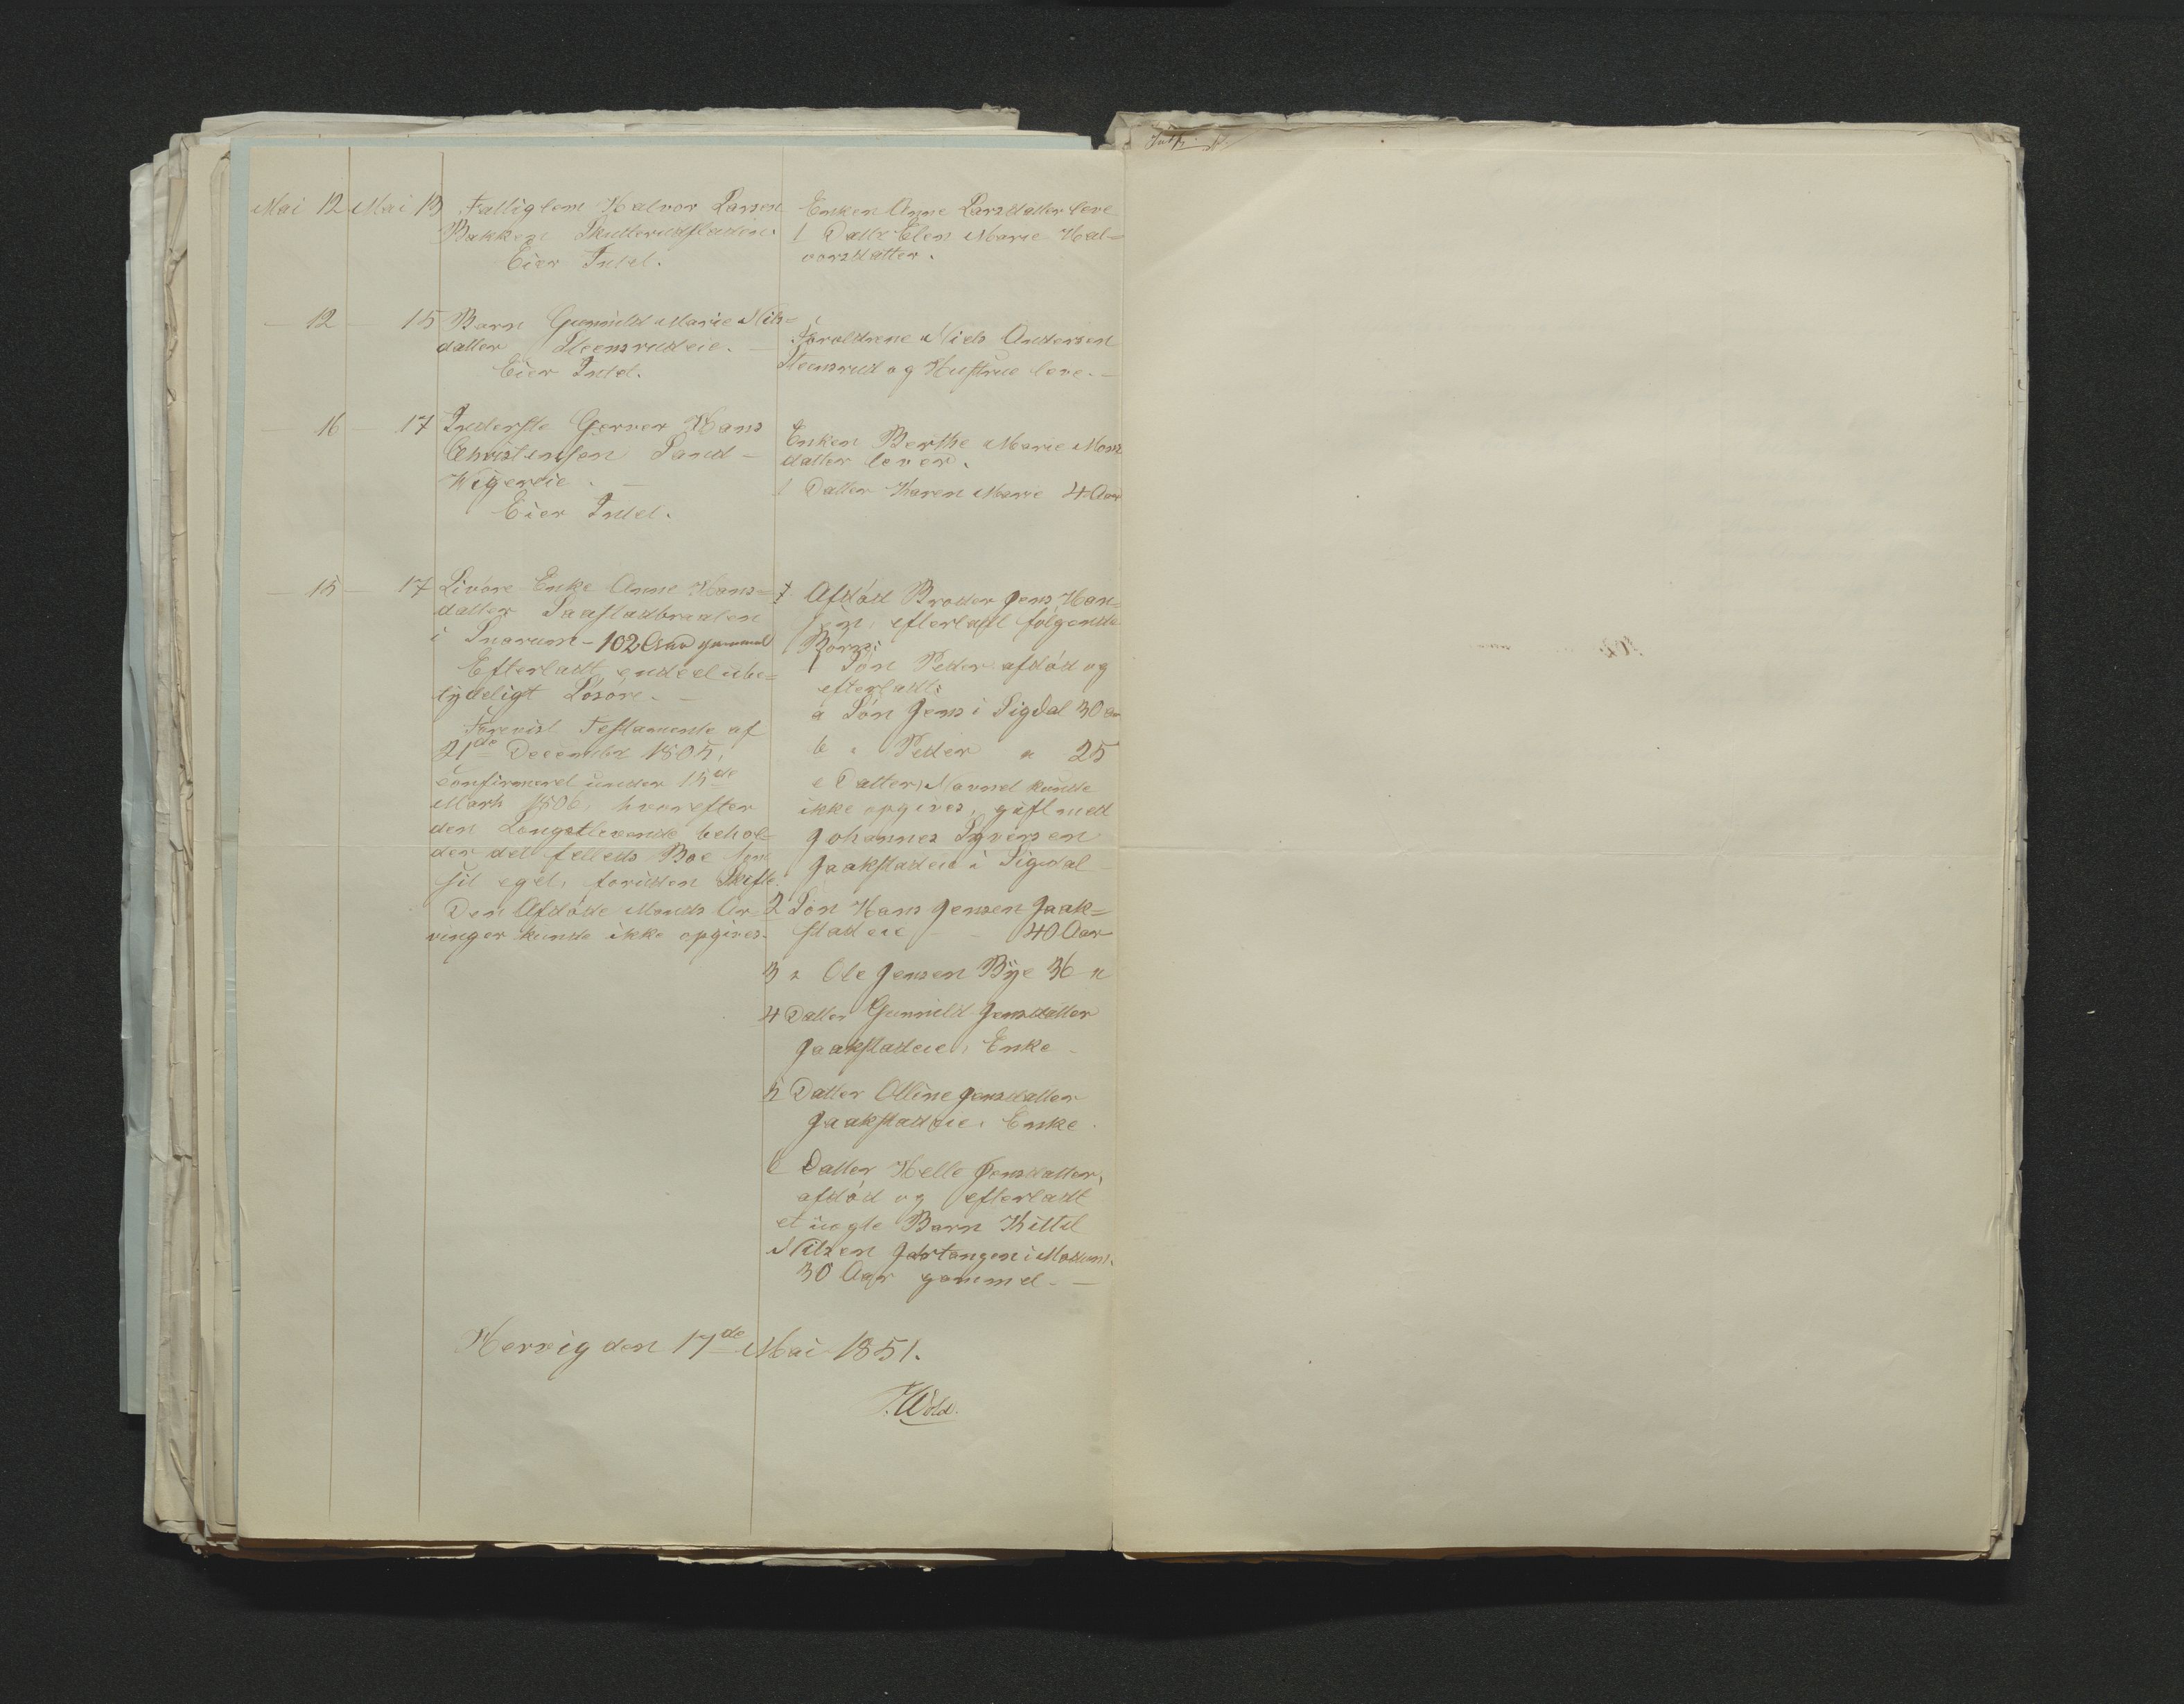 Mai 12 Mai 13 Fattiglem Halvor Larsen
Bakken Skuterudfladen.
Eier Intet.
Enken Anne Larsdatter leve
1 Datter Elen Marie Hal-
vorsdatter.
— 12 — 15 Barn Gunnild Marie Nils-
datter Steensrudeie.
Eier Intet.
Foreldrene Niels Andersen
Steensrud og Hustrue leve. —
— 16 — 17 Inderste Gerver Hans
Christensen Sand-
Wigereie. —
Eier Intet.
Enken Berthe Marie Mons
datter lever.
1 Datter Karen Marie 4 Aar
— 15 — 17 Livøre Enke Anne Hans-
datter
i Snarum - 102 Aar gammel
Efterladt endeel ube-
tydeligt Løsøre. —
Forevist Testamente af
21de December 1805,
confirmeret under 15de
Marts 1806, hvorefter
den Længstlevende behol-
der det felleds Boe som
sit eget, foruden Skifte.
Den Afdøde Mands Ar-
vinger kunde ikke opgives.
† Afdød Broder Jens Han-
sen, efterladt følgende
Børn:
1 Søn Peder afdød og
efterladt:
a Søn Jens i Sigdal 30 Aar
b " Peder " 25
c Datter, Navnet kunde
ikke opgives, gift med
Johannes Syversen
Jaakstadeie i Sigdal
2 Søn Hans Jensen Jaak-
stadeie — 40 Aar
3 " Ole Jensen Bye 36 "
4 Datter Gunnild Jensdatter
Jaakstadeie, Enke
5 Datter Olline Jensdatter
Jaakstadeie, Enke.
6 Datter Helle Jensdatter,
afdød og efterladt
et uegte Barn Kittel
Nilsen Jartangen i Modum,
30 Aar gammel. —
Hervig den 17de Mai 1851.
T. Wold.